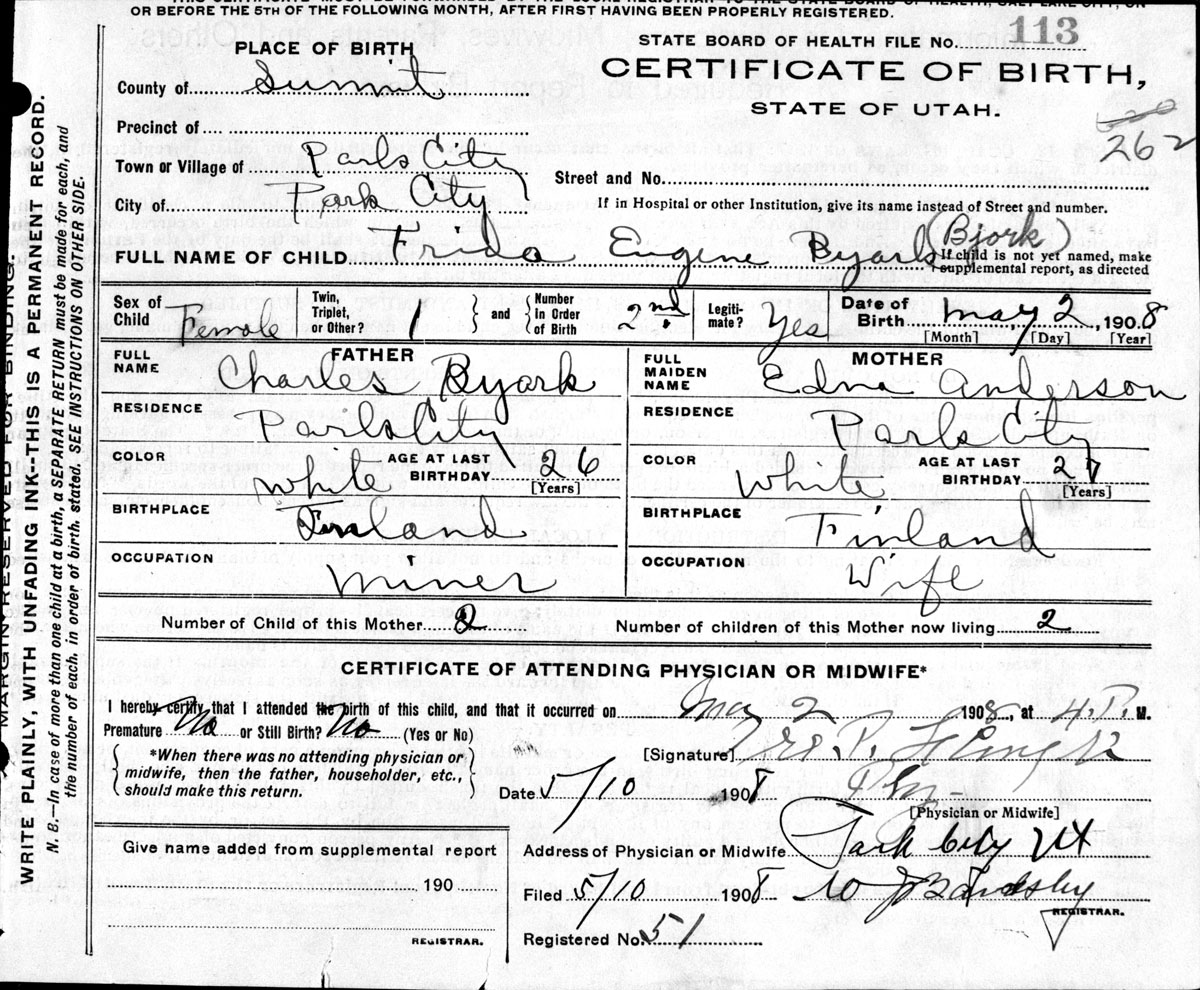 OR BEFORE THE 5TH OF THE FOLLOWING MONTH, AFTER FIRST HAVING BEEN PROPERLY REGISTERED.
MARGIN RESERVED FOR BINDING.
WRITE PLAINLY, WITH UNFADING INK-THIS IS A PERMANENT RECORD.
N. B.—In case of more than one child at a birth, a SEPARATE RETURN must be made for each, and
the number of each, in order of birth, stated. SEE INSTRUCTIONS ON OTHER SIDE.
STATE BOARD OF HEALTH FILE NO. 113
CERTIFICATE OF BIRTH,
STATE OF UTAH.
262
PLACE OF BIRTH
County of Summit
Precinct of
Town or Village of Park City
City of Park City
Street and No.
If in Hospital or other Institution, give its name instead of Street and number.
FULL NAME OF CHILD Frida Eugene Byark (Bjork)
If child is not yet named, make
supplemental report, as directed
Sex of Child Female Twin, Triplet, or Other? 1 and Number in Order of Birth 2nd Legiti-mate? Yes Date of Birth May 2, 1908
[Month] [Day] [Year]
FATHER
FULL NAME Charles Byark
RESIDENCE Park City
COLOR White AGE AT LAST BIRTHDAY 26 [Years]
BIRTHPLACE Finland
OCCUPATION Miner
MOTHER
FULL MAIDEN NAME Edna Anderson
RESIDENCE Park City
COLOR White AGE AT LAST BIRTHDAY [Years]
BIRTHPLACE Finland
OCCUPATION Wife
Number of Child of this Mother 2 Number of children of this Mother now living 2
CERTIFICATE OF ATTENDING PHYSICIAN OR MIDWIFE*
I hereby certify that I attended the birth of this child, and that it occurred on May 2 1908, at 4 P. M.
Premature No or Still Birth? No (Yes or No)
*When there was no attending physician or
midwife, then the father, householder, etc.,
should make this return.
[Signature]
Date 5/10 1908 Phy
[Physician or Midwife]
Address of Physician or Midwife Park City Ut
Filed 5/10 1908
REGISTRAR.
Registered No. 51
Give name added from supplemental report
190
REGISTRAR.